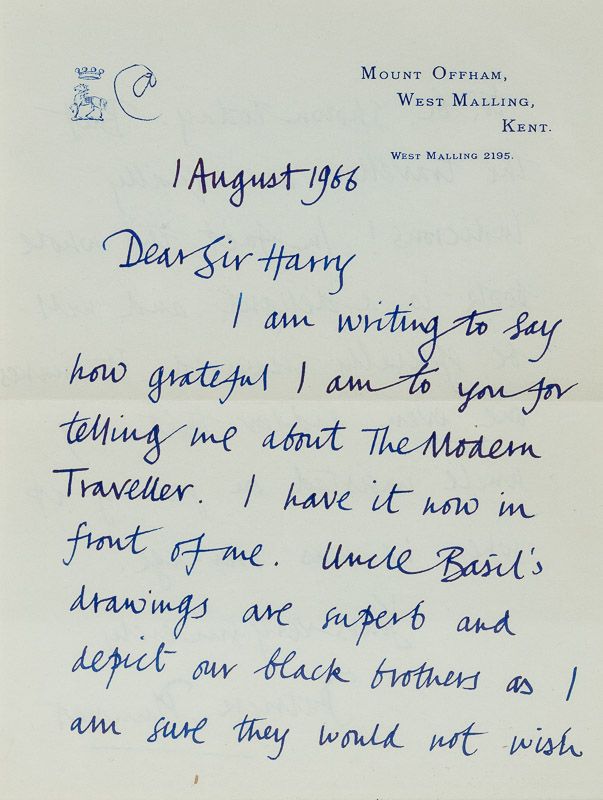 MOUNT OFFHAM,
WEST MALLING,
KENT.
WEST MALLING 2195.
1 August 1966
Dear Sir Harry
I am writing to say
how grateful I am to you for
telling me about The Modern
Traveller. I have it now in
front of me. Uncle Basil's
drawings are superb and
depict our black brothers as I
am sure they would not wish